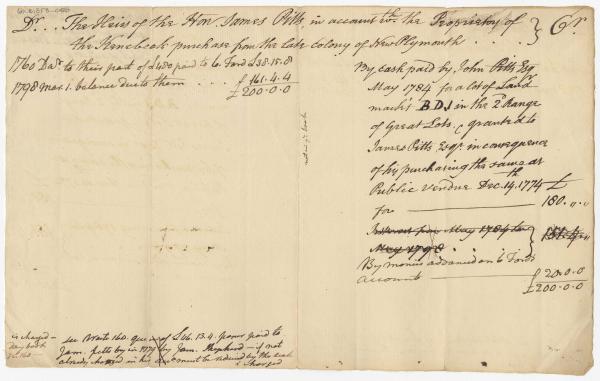 Dr... The Heirs of the Hon. James Pitts, in account wth. the Proprietors of
the Kennebeck purchase from the late colony of New Plymouth . . . } Cr.
1760 Decr. to their part of £480 paid to G. Ford £38.15.8
1798 Mar. 1. balance due to them . . . £161.4.4
£200.0.0
By cash paid by John Pitts Esqr
May 1784 for a Lot of Land
mark'd BD1 in the 2d Range
of Great Lots, granted to
James Pitts Esqr. in consequence
of his purchasing the same at
Public Vendue Decr. 14th. 1774
for £180.
Interest from May 1784 to
May 1798
By monies advanced on G Fords
account £20.0.0
£200.0.0
not in ye. book
is charged
day book
160
see Waste 160. of £66.13.4 paid to
Jam. Pitts by in 1774 by Jam. Shepherd - if not
already charged in his must be reduced by this
charged